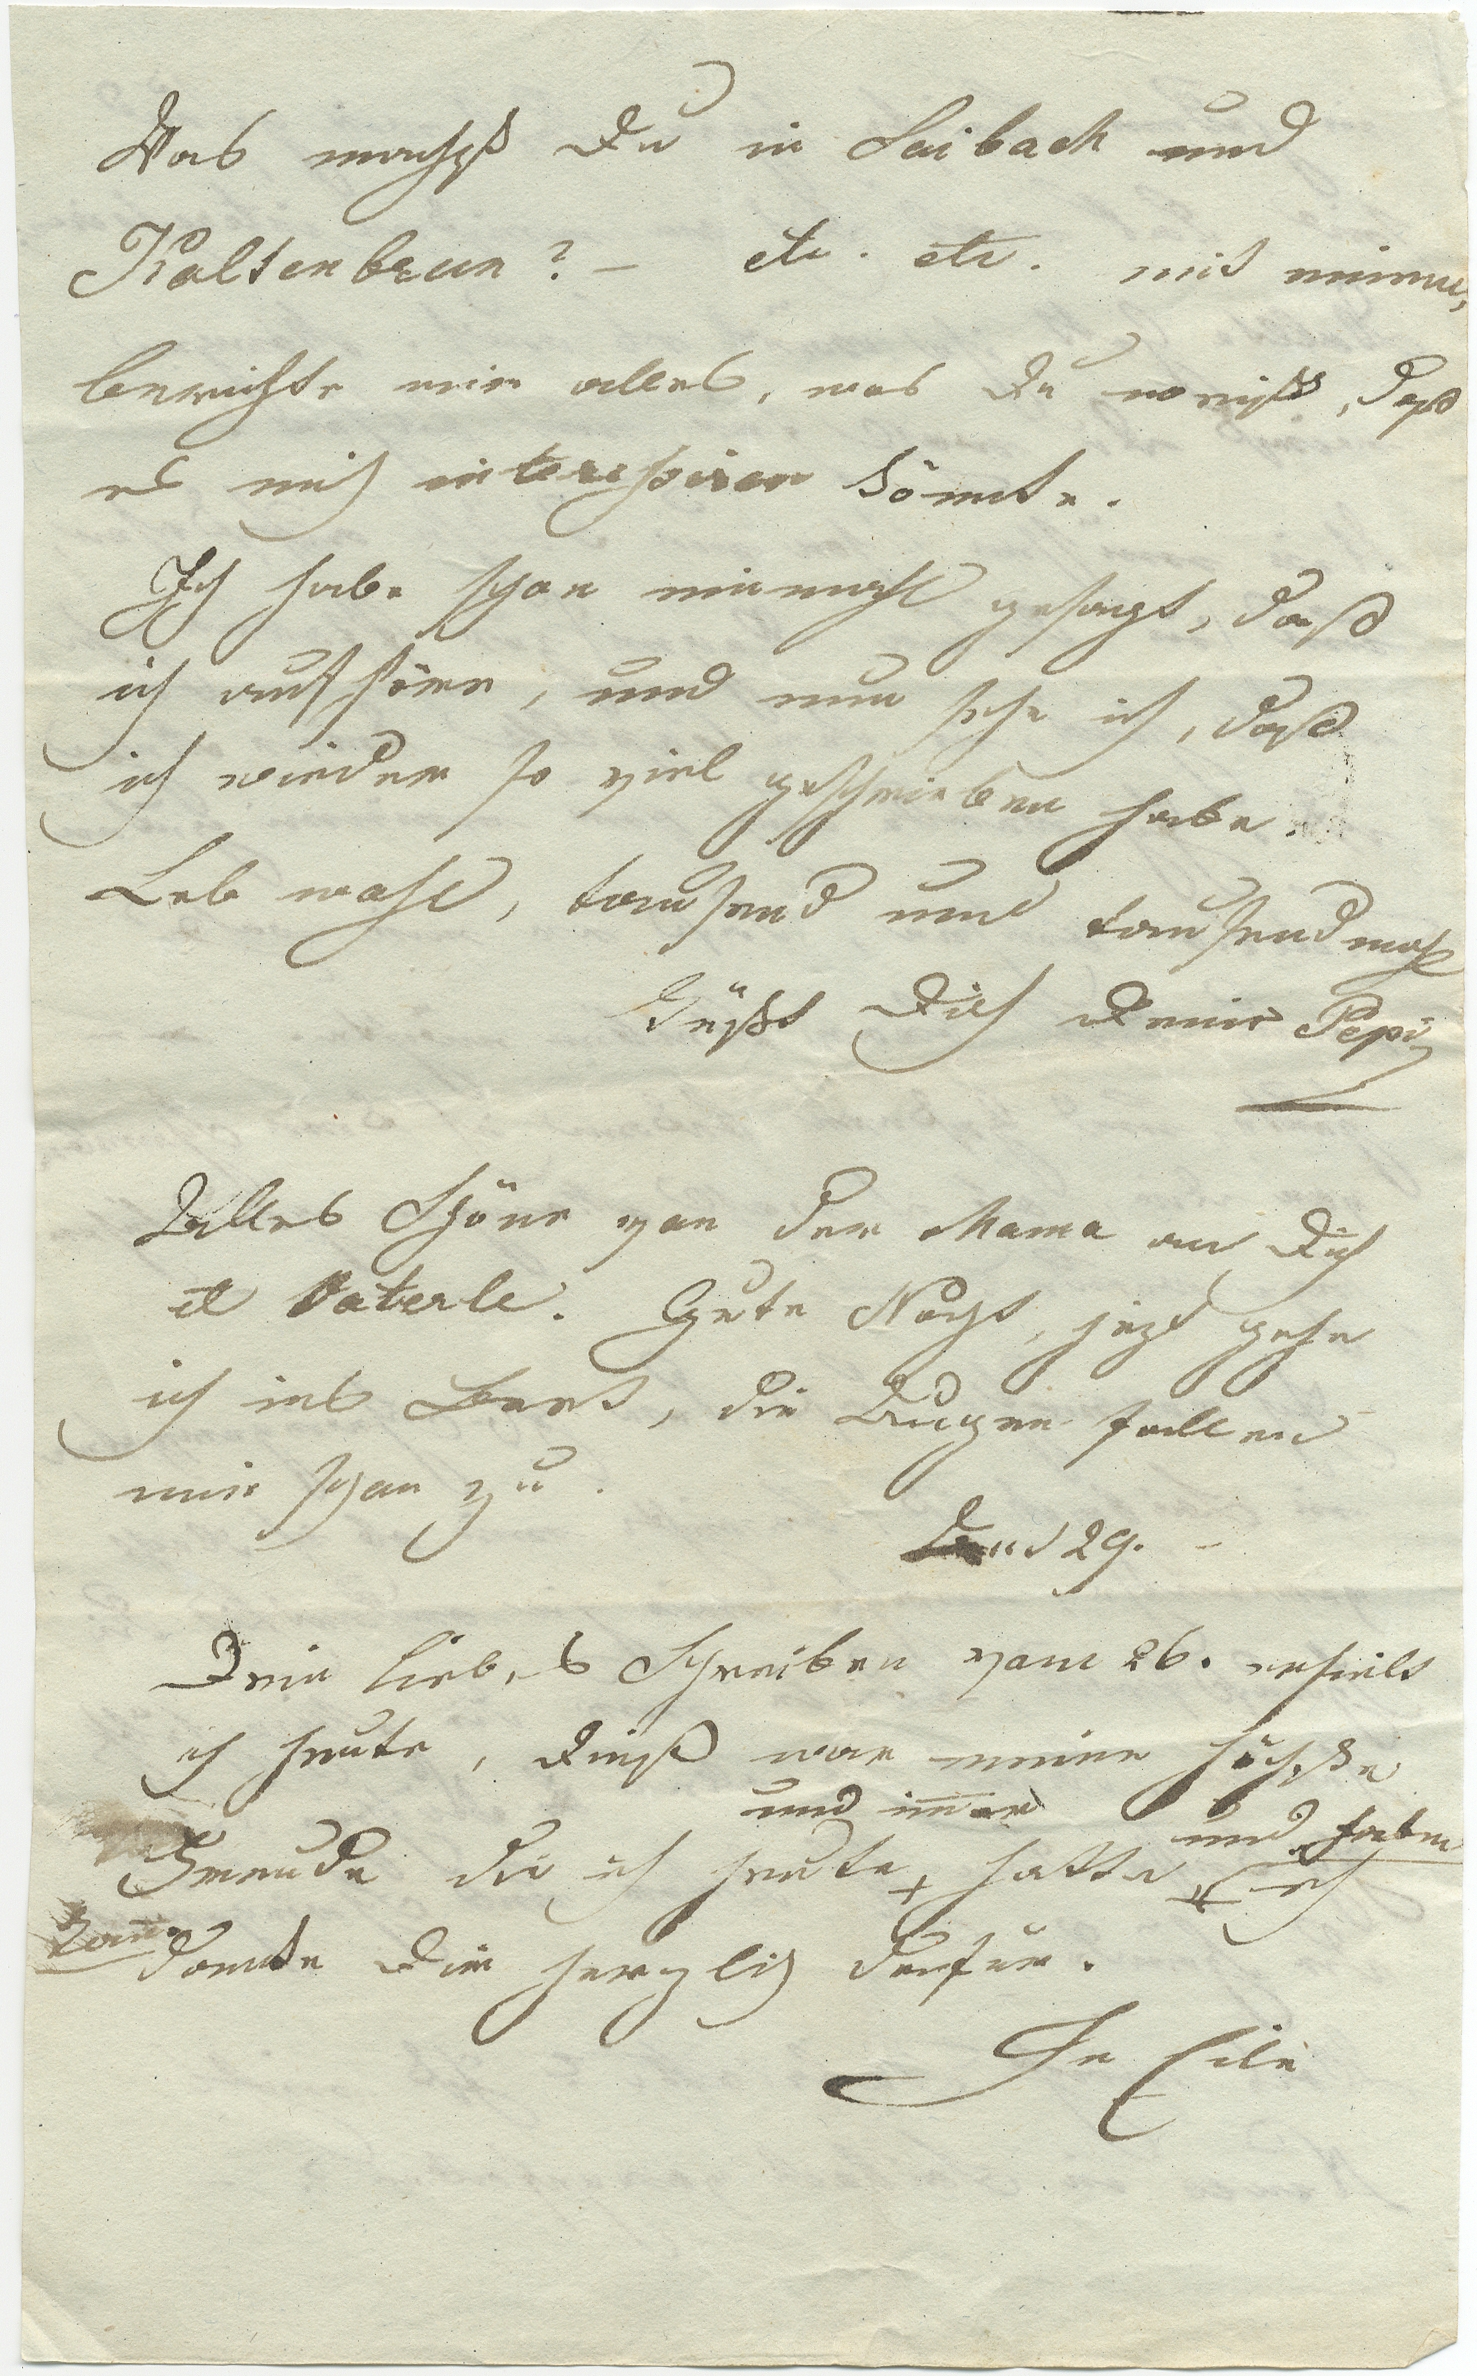 Was machst Du in Laibach und
Kaltenbrun? – etc. etc. mit einem,
berichte mir alles, was Du weißt, daß
es mich interessiren könnte.
Ich habe schon einmahl gesagt, daß
ich aufhöre, und nun sehe ich, daß
ich wieder so viel geschrieben habe.
Leb wohl, tausend und tausendmahl
küßt Dich Deine Pepi
Alles Schöne von der Mama an Dich
et Vaterle. Gute Nacht, jezt gehe
ich ins Bett, die Augen fallen
mir schon zu.
Den 29.
Dein liebes Schreiben vom 26. erhielt
ich heute, dieß war meine höchste
und immer und haben
Freude die ich heute + hatte, + ich
kann
danke Dir herzlich dafür.
In Eile